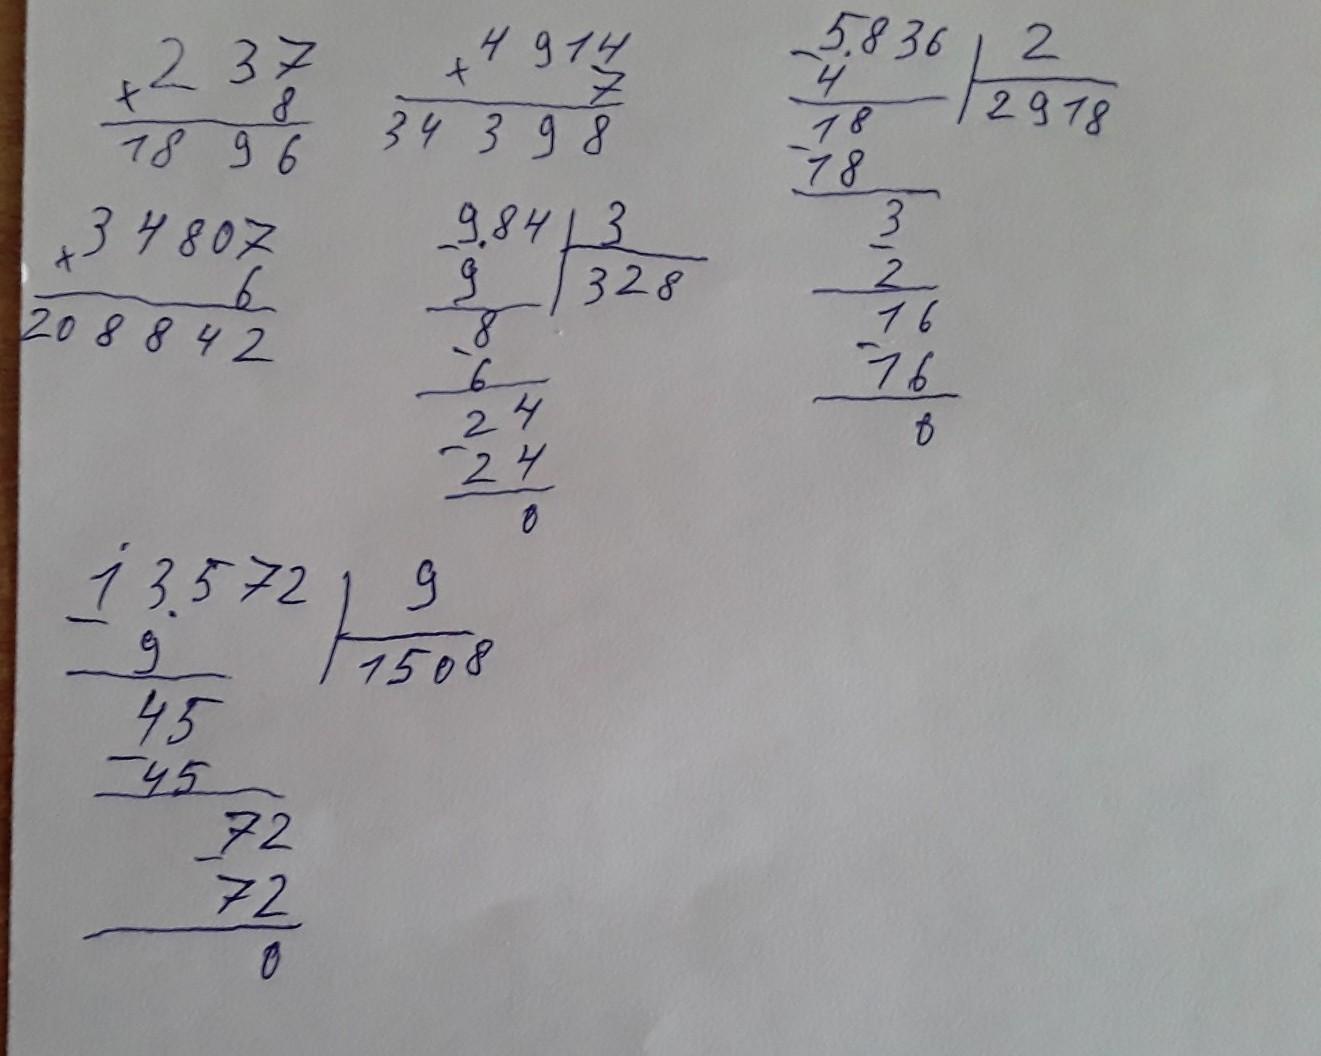 × 237
8
1896
× 4914
7
34398
- 5.836 | 2
4 2918
18
- 18
3
- 2
16
- 16
0
× 34807
6
208842
- 9.84 | 3
9 328
8
- 6
24
- 24
0
- 13.572 | 9
9 1508
45
- 45
72
- 72
0